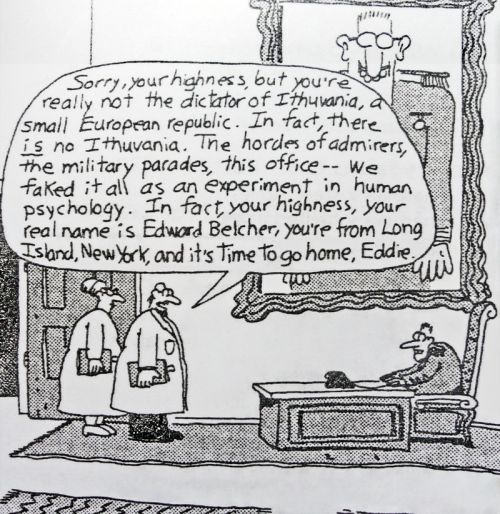 Sorry, your highness, but you're
really not the dictator of Ithuvania, a
small European republic. In fact, there
is no Ithuvania. The hordes of admirers,
the military parades, this office -- we
faked it all as an experiment in human
psychology. In fact, your highness, your
real name is Edward Belcher, you're from Long
Island, New York, and it's time to go home, Eddie.